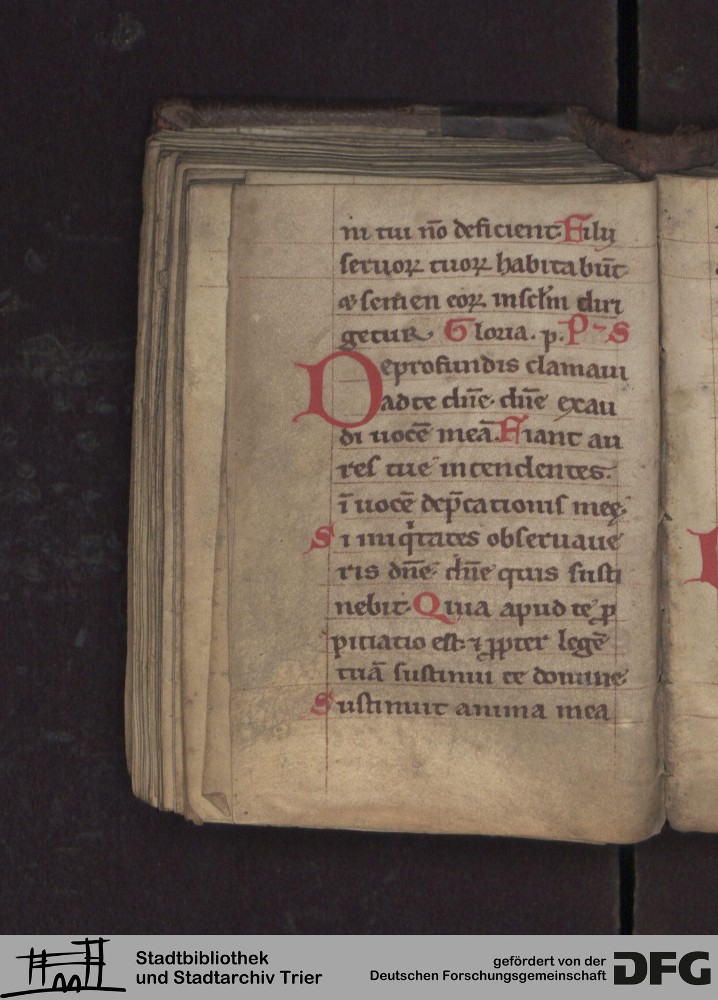 ni tui nō deficient Filij
seruoꝝ tuoꝝ habitabūt
& semen eoꝝ inscl̄m diri
getur. Gloria. p. Ps
Deprofundis clamaui
adte dn̄e. dn̄e exau
di uocē meā. Fiant au
res tue intendentes.
ī uocē dep̄cationis meę.
Si iniq̇tates obseruaue
ris dn̄e. dn̄e quis susti
nebit. Quia apud te ꝓ
pitiatio est. ⁊ ꝓpter legē
tuā sustinui te domine.
Sustinuit anima mea
Stadtbibliothek
und Stadtarchiv Trier
gefördert von der
Deutschen Forschungsgemeinschaft
DFG